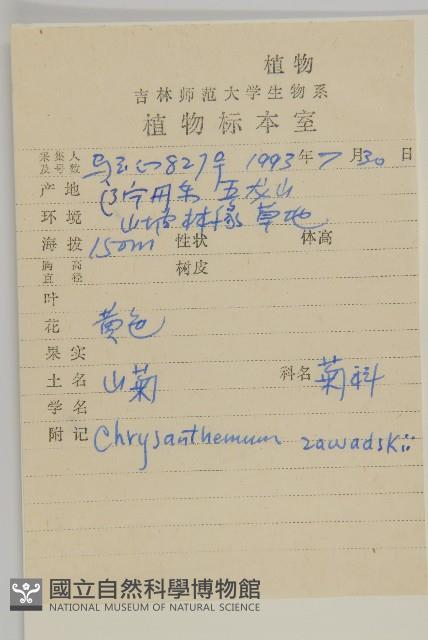 植物
吉林师范大学生物系
植物标本室
采集人及号数 827号 1993年7月30日
产地 辽宁丹东 五龙山
环境 山坡林缘草地
海拔 150m 性状 体高
胸高直径 树皮
叶
花 黄色
果实
土名 山菊 科名 菊科
学名
附记 Chrysanthemum zawadskii
國立自然科學博物館
NATIONAL MUSEUM OF NATURAL SCIENCE